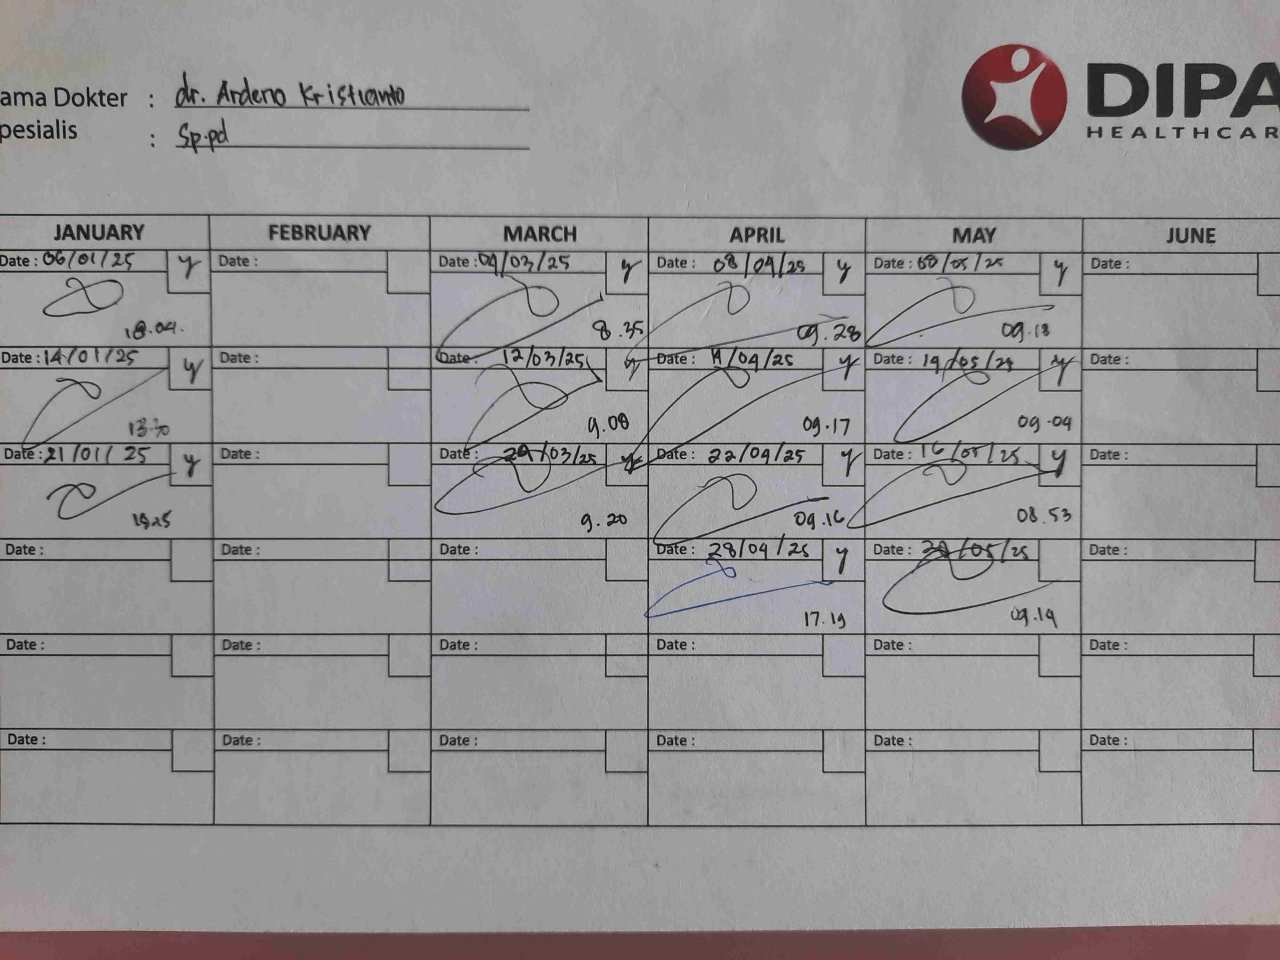 ama Dokter : dr. Ardeno Kristianto
pesialis : Sp.pd
DIPA
HEALTHCAR
JANUARY FEBRUARY MARCH APRIL MAY JUNE
Date : 06/01/25 y Date : Date : 04/03/25 y Date : 08/04/25 y Date : 08/05/25 y Date :
18.04. 8.35 09.28 09.18
Date : 14/01/25 y Date : Date : 12/03/25 y Date : /04/25 y Date : 14/05/25 y Date :
9.08 09.17 09.04
Date : 21/01/25 y Date : Date : 24/03/25 y Date : 22/04/25 y Date : 16/05/25 y Date :
9.20 09.16 08.53
Date : Date : Date : Date : 28/04/25 y Date : /05/25 Date :
17.19 09.14
Date : Date : Date : Date : Date : Date :
Date : Date : Date : Date : Date : Date :